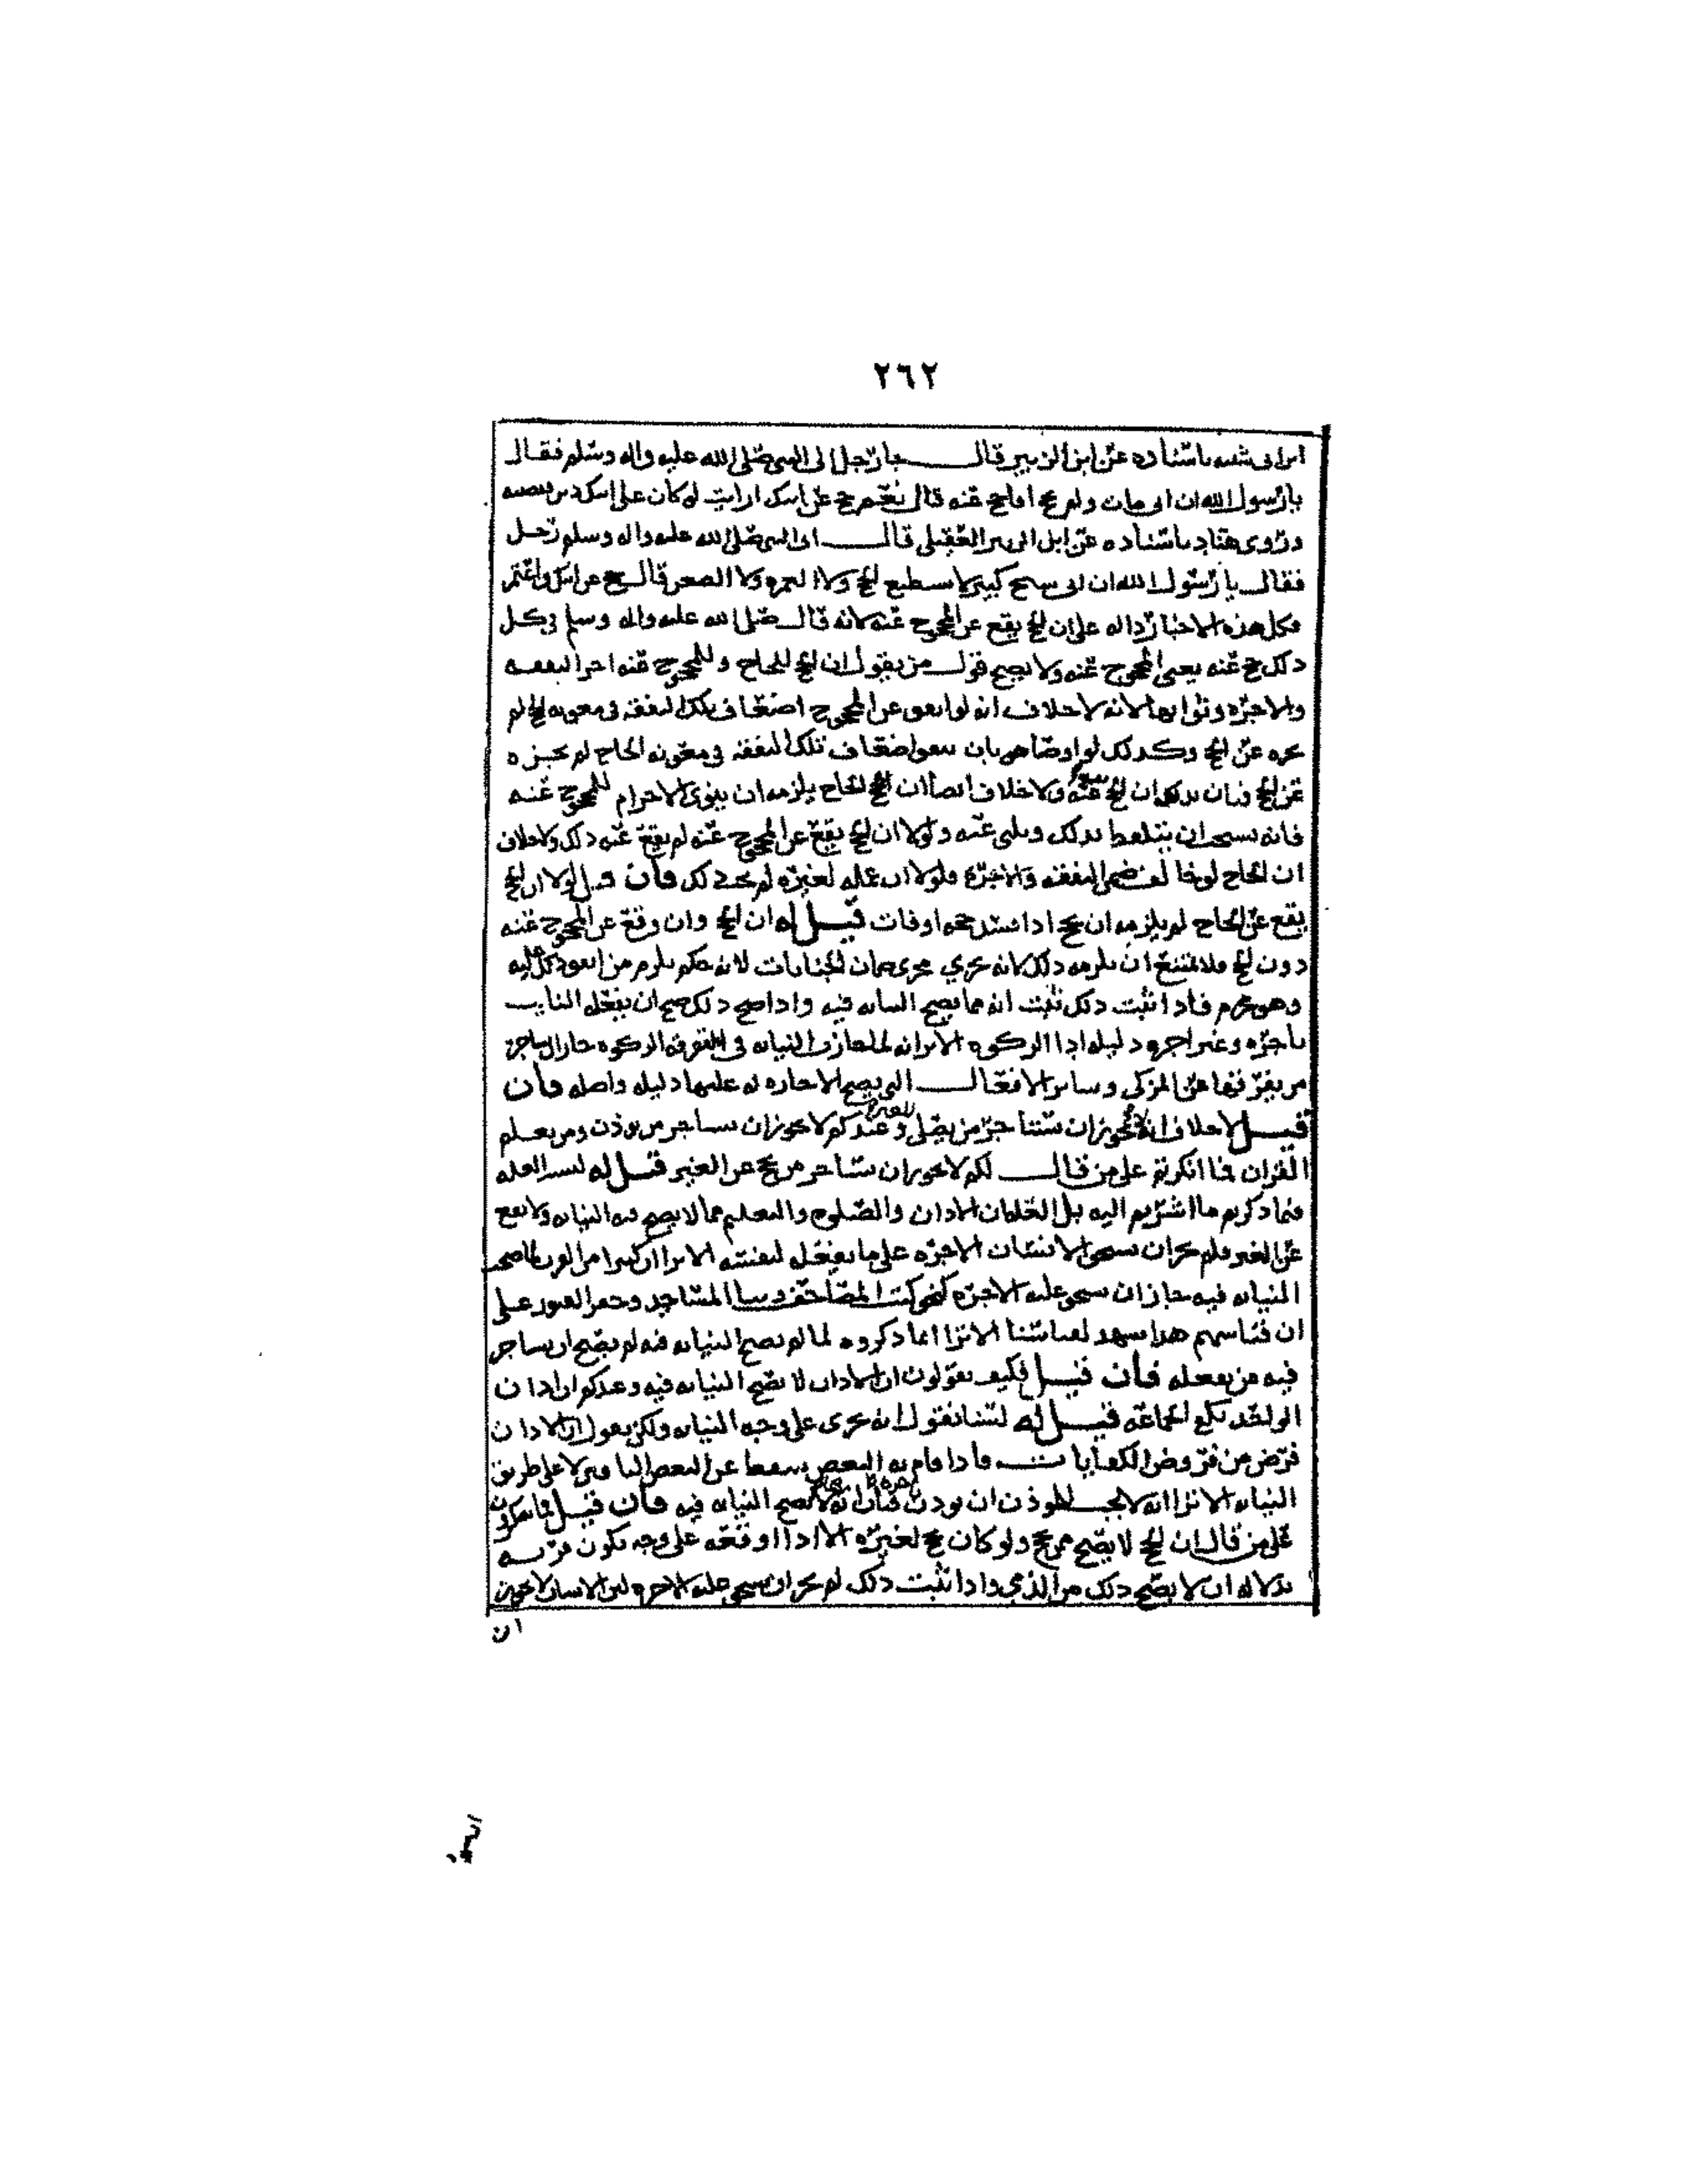 ٢٦٢
ابن ابي شيبه باسناده عن ابن الزبير قال جا رجل الى النبي صلى الله عليه واله وسلم فقال
يا رسول الله ان ابي مات ولم يحج افاحج عنه قال نعم حج عن ابيك ارايت لو كان على ابيك دين
وروى هناد باسناده عن ابي العقيلي قال اتى النبي صلى الله عليه واله وسلم رجل
فقال يا رسول الله ان ابي شيخ كبير لا يستطيع الحج ولا العمره ولا الضعن قال حج عن ابيك واعتمر
فكل هذه الاخبار داله على ان الحج يقع عن المحجوج عنه لانه قال صلى الله عليه واله وسلم في كل
ذلك حج عنه يعني المحجوج عنه ولا يصح قول من يقول ان الحج للحاج وللمحجوج عنه اجر النفقه
والاجره وثوابها لانه لا خلاف انه لو انفق عن المحجوج اضعاف تلك النفقه في معونه الحج لم
يجزه عن الحج وكذلك لو اوصا هو بان ينفق اضعاف تلك النفقه في معونه الحاج لم يجزه
عن الحج فبان بذلك ان الحج عنه ولا خلاف ايضا ان الحاج يلزمه ان ينوي الاحرام للمحجوج عنه
فانه يستحب ان يتلفظ بذلك ويلبي عنه ولولا ان الحج يقع عن المحجوج عنه لم يقع عنه ذلك ولا خلاف
ان الحاج لو خالف ضمن النفقه والاجره فلولا ان عمله لغيره لم يجب ذلك فان قيل لولا ان الحج
يقع عن الحاج لم يلزمه ان يحج اذا افسد حجه او فات قيل له ان الحج وان وقع عن المحجوج عنه
دون الحج فلا يمتنع ان يلزمه ذلك لانه يجري مجرى ضمان الجنايات لانه حكم يلزم من اتفق ذلك عليه
وهو محرم فاذا ثبت ذلك ثبت انه مما يصح النيابه فيه واذا صح ذلك صح ان يفعله النايب
باجره وغير اجره دليله اذا الزكوه الا ترى انه لما جازت النيابه في تفرقه الزكوه جاز ان يستاجر
من يفرقها عن المزكي وساير الافعال التي يصح الاجاره له عليها دليله واصله فان
قيل لا خلاف انه لا يجوز ان يستاجر من يصلي وعندكم لا يجوز ان يستاجر من يوذن ومن يعلم
القران فما انكرتم على من قال لكم لا يجوز ان يستاجر من يحج عن الغير قيل له ليس العله
فيما ذكرتم ما اشرتم اليه بل العله ان الاذان والصلوه والتعليم مما لا يصح فيه النيابه ولا يقع
عن الغير فلم يجز ان يستحق الانسان الاجره على ما يفعله لنفسه الا ترى ان كثيرا من القرب لما صحت
النيابه فيه جاز ان يستحق عليه الاجره كنحو كتب المصاحف وبنا المساجد وحفر القبور على
ان قياسهم هذا يشهد لقياسنا الا ترى ان ما ذكروه لما لم يصح النيابه فيه لم يصح ان يستاجر
فيه من يفعله فان قيل فكيف تقولون ان الاذان لا تصح النيابه فيه وعندكم ان اذان
الواحد يكفي الجماعه قيل له لسنا نقول انه يجري على وجه النيابه ولكن نقول ان الاذان
فرض من فروض الكفايات فاذا قام به البعض سقط عن البعض الباقين لا على طريق
النيابه الا ترى انه لا يجب للموذن ان يوذن فبان انه لا تصح النيابه فيه فان قيل فما تنكرون
على من قال ان الحج لا يصح ممن يحج ولو كان يحج لغيره الا اذا اوقعه على وجه يكون قربه
بدلاله ان لا يصح ذلك من الذمي واذا ثبت ذلك لم يجز ان يستحق عليه الاجره لان الانسان لا يجوز
ان